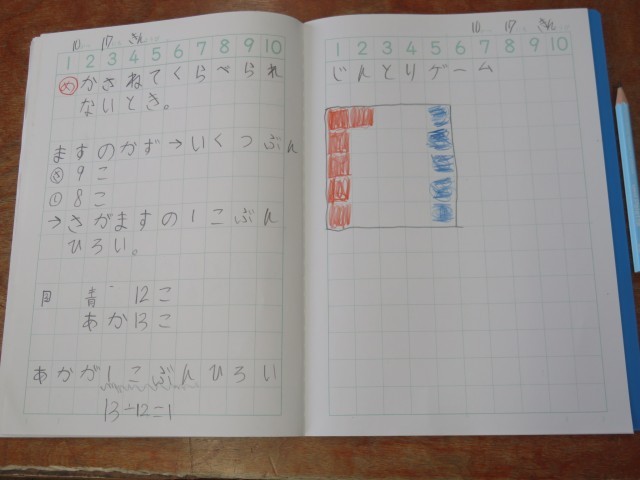 10 17 きん
1 2 3 4 5 6 7 8 9 10
め かさねてくらべられ
ないとき。
ますのかず→いくつぶん
あ 9こ
い 8こ
→さがますの1こぶん
ひろい。
青 12こ
あか13こ
あかが1こぶんひろい
13-12=1
10 17 きん
1 2 3 4 5 6 7 8 9 10
じんとりゲーム